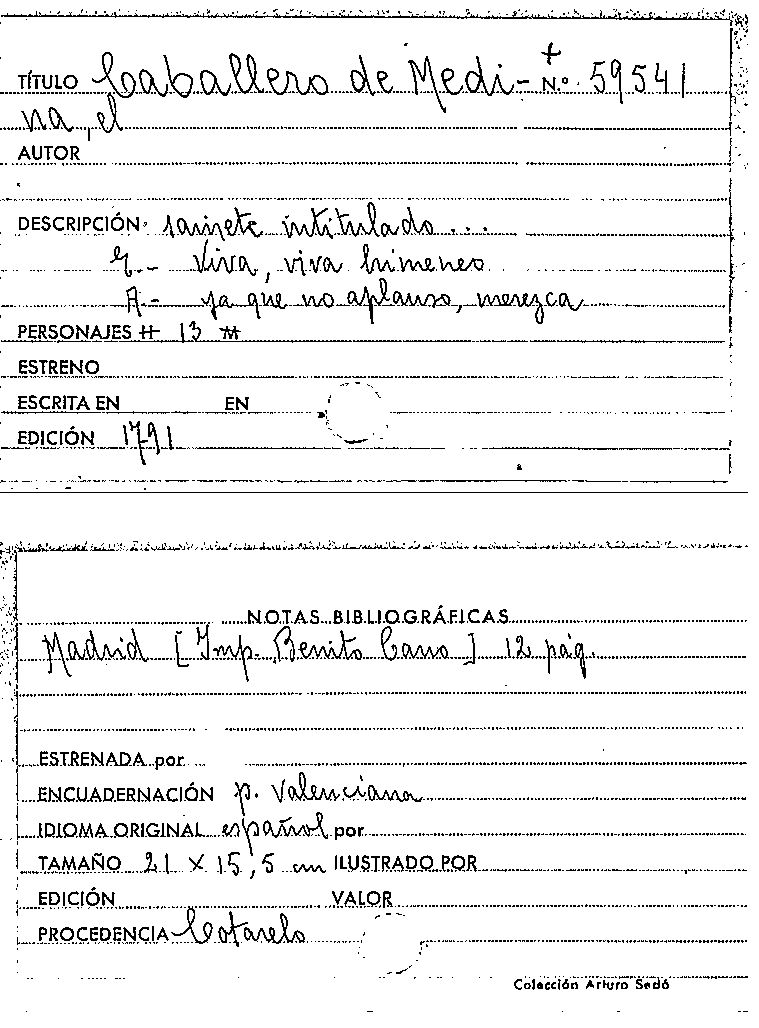 TÍTULO Caballero de Medi- + N.º 59541
na, el
AUTOR
DESCRIPCIÓN sainete intitulado...
E.- Viva, viva himeneo
A.- ya que no aplauso, merezca
PERSONAJES H 13 M
ESTRENO
ESCRITA EN EN
EDICIÓN 1791
NOTAS BIBLIOGRÁFICAS
Madrid [Imp. Benito Cano] 12 pág.
ESTRENADA por
ENCUADERNACIÓN p. Valenciana
IDIOMA ORIGINAL español por
TAMAÑO 21 X 15,5 cm ILUSTRADO POR
EDICIÓN VALOR
PROCEDENCIA Cotarelo
Colección Arturo Sedó